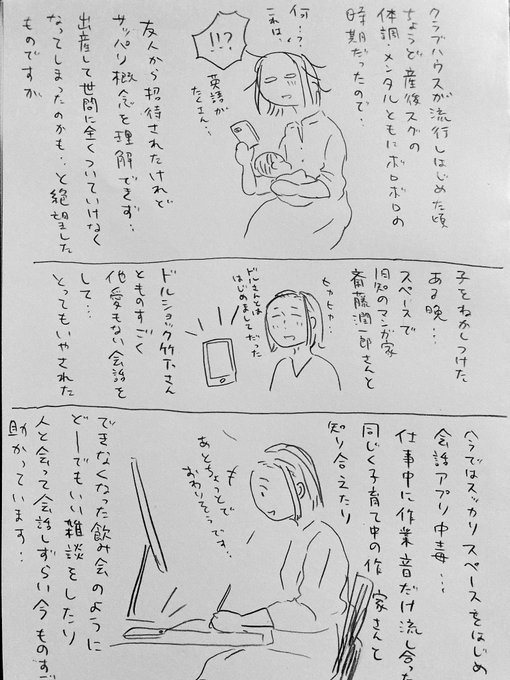 クラブハウスが流行しはじめた頃
ちょうど産後スグの
体調・メンタルともにボロボロの
時期だったので…
何…?
これは、
!!?
英語が
たくさん…
友人から招待されたけれど
サッパリ概念を理解できず…
出産して世間に全くついていけなく
なってしまったのかも…と絶望した
ものですが
子をねかしつけた
ある晩…
スペースで
旧知のマンガ家
齋藤潤一郎さんと
ヒソヒソ…
ドルさんとは
はじめましてだった
ドルショック竹下さん
とものすごく
他愛もない会話を
して…
とってもいやされた
今ではスッカリスペースをはじめ
会話アプリ中毒…
仕事中に作業音だけ流し合った
同じく子育て中の作家さんと
知り合えたり
あとちょっとで
おわりそうです…
できなくなった飲み会のように
どーでもいい雑談をしたり
人と会って会話しずらい今ものすご
助かっています…